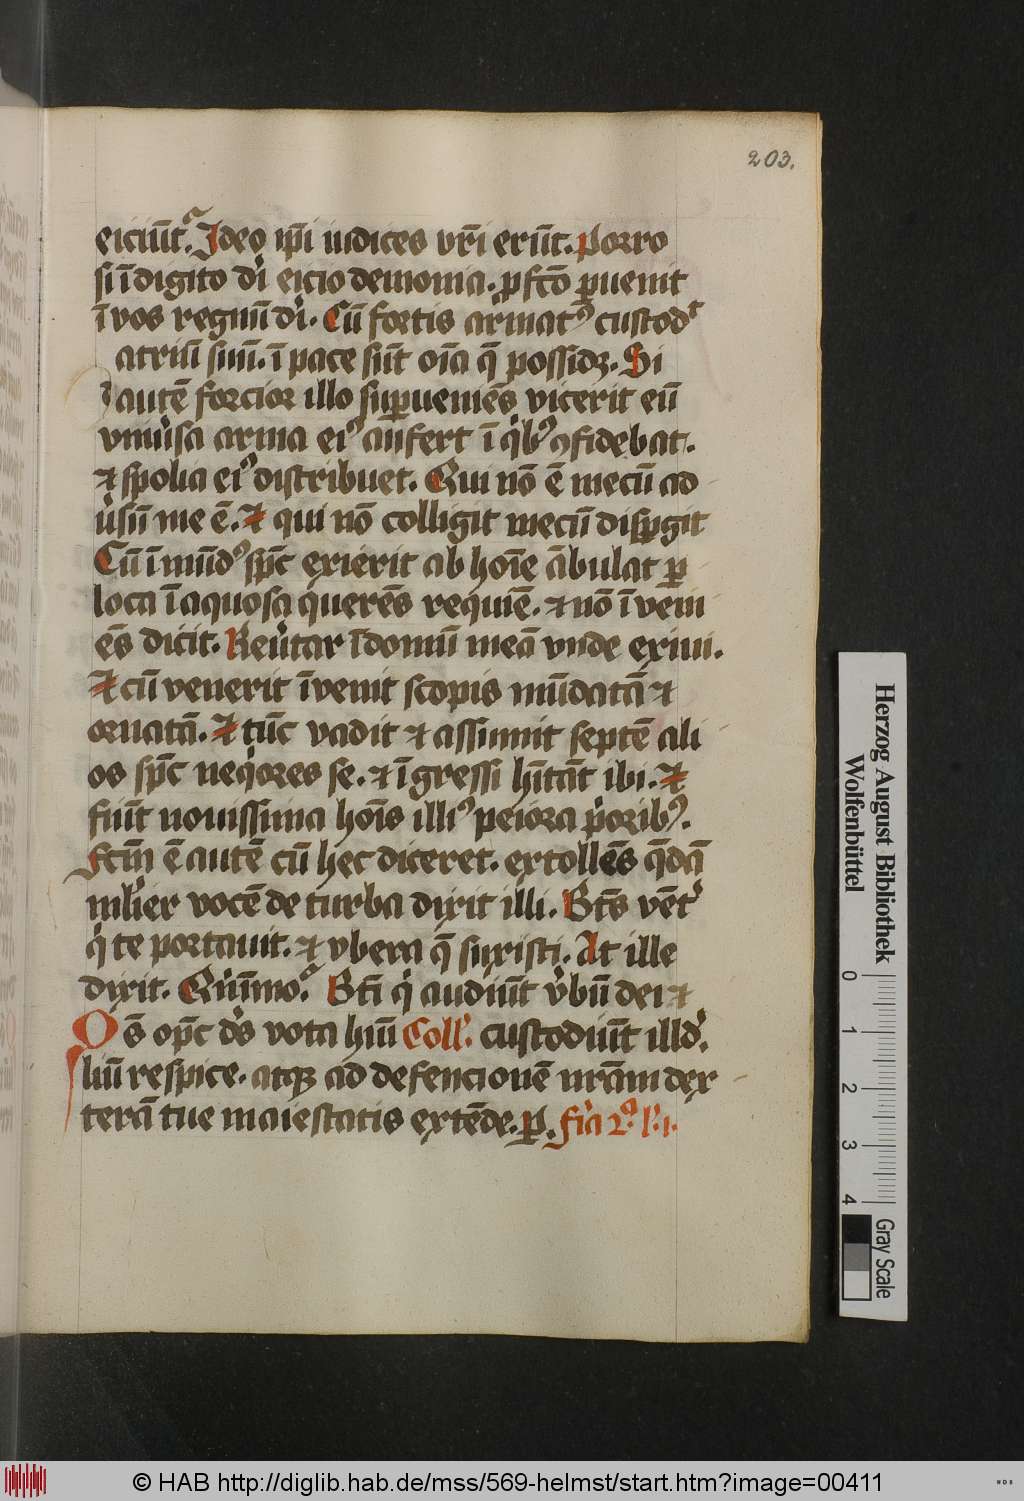 203.
eiciūt. Ideo ip̄i iudices vr̄i erūt. Porro
si ī digito di̅ eicio demonia. ꝓfc̄o ꝑuenit
ī vos regnū di̅. Cū fortis armatꝰ custodᵗ
atriū suū. ī pace sūt oīa q̄ possidꝫ. Si
autē forcior illo suꝑueniēs vicerit eū
vniu̾sa arma eiꝰ aufert ī qͥbꝰ ꝯfidebat.
⁊ spolia eiꝰ distribuet. Qui nō ē mecū ad
u̾sū me ē. ⁊ qui nō colligit mecū disꝑgit
Cū īmūdꝰ sp̄c exierit ab hoīe ābulat ꝑ
loca īaquosa querēs requiē. ⁊ nō īveni
ēs dicit. Reu̾tar ī domū meā vnde exiui.
⁊ cū venerit īvenit scopis mūdatā ⁊
ornatā. ⁊ tūc vadit ⁊ assumit septē ali
os sp̄c neqͥores se. ⁊ īgressi hītāt ibi. ⁊
fiūt nouissima hoīs illiꝰ peiora pͥoribꝰ.
Fctm̄ ē autē cū hec diceret. extollēs q̄dā
mlier vocē de turba dixit illi. Bt̄s vēt̾
qͥ te portauit. ⁊ vbera q̄ suxisti. At ille
dixit. Qͥnīmo. Bt̄i qͥ audiūt v̾bū dei ⁊
Os̄ opc̄ ds̄ vota hūi Coll̾. custodiūt illd̾.
liū respice. atqꝫ ad defencionē nrām dex
terā tue maiestatis extēde. ꝑ. fīa 2ᵃ l̾. i.
Herzog August Bibliothek
Wolfenbüttel
0 1 2 3 4
Gray Scale
© HAB http://diglib.hab.de/mss/569-helmst/start.htm?image=00411